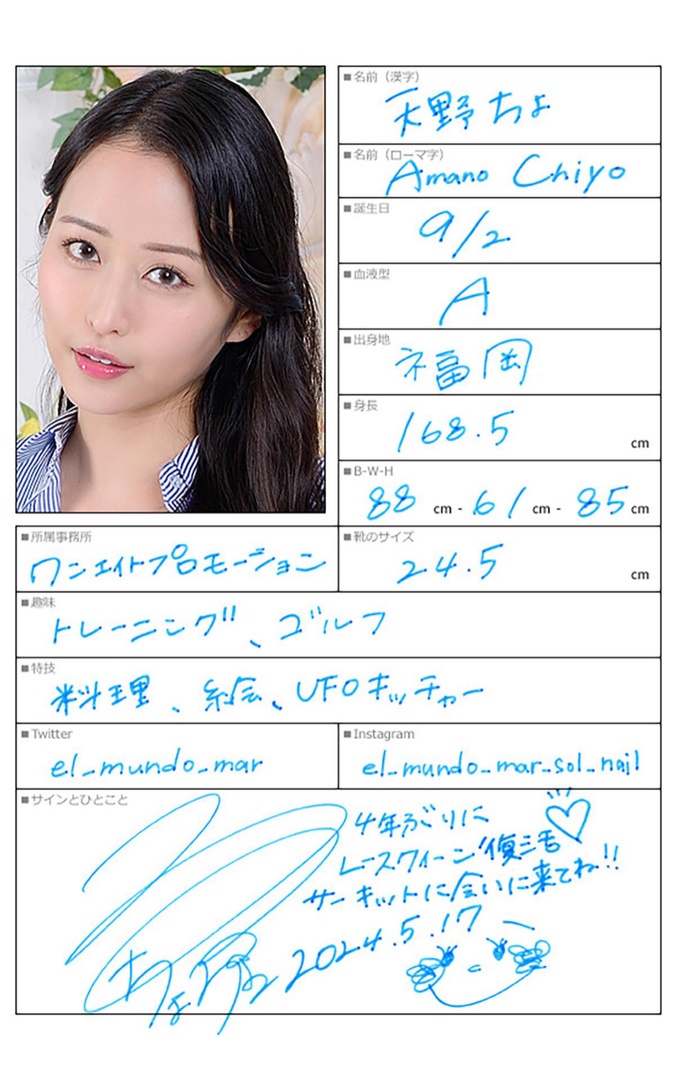 ■名前（漢字）
天野ちよ
■名前（ローマ字）
Amano Chiyo
■誕生日
9/2
■血液型
A
■出身地
福岡
■身長
168.5 cm
■B-W-H
88 cm - 61 cm - 85 cm
■所属事務所
ワンエイトプロモーション
■靴のサイズ
24.5 cm
■趣味
トレーニング、ゴルフ
■特技
料理、絵、UFOキャッチャー
■Twitter
el_mundo_mar
■Instagram
el_mundo_mar_sol_nail
■サインとひとこと
4年ぶりに
レースクィーン復活
サーキットに会いに来てね!!
2024.5.17